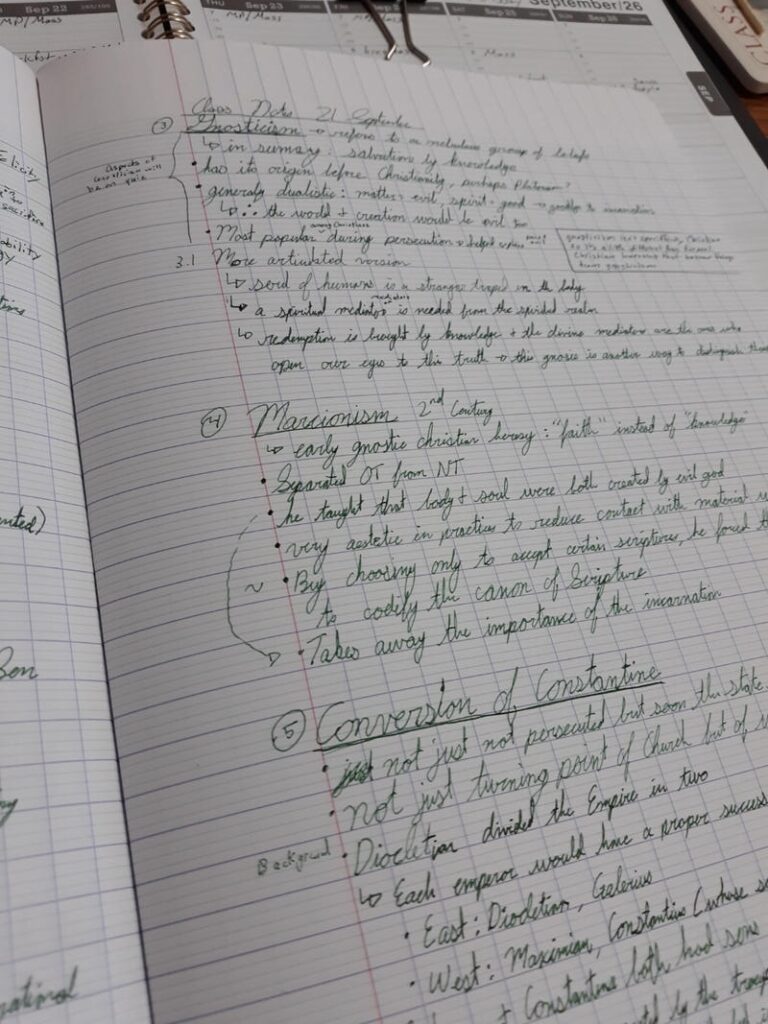 Sep 22
THU Sep 23
FRI
SAT Sep 25
SUN Sep 26
September/26
MP/Mass
MP/Mass
Mass
SEP
CLASS
Class Notes 21 September
③ Gnosticism → refers to a group of beliefs
↳ in summary: salvation by knowledge
• has its origin before Christianity, perhaps Platonism?
• generally dualistic: matter = evil, spirit = good →
↳ ∴ the world + creation would be evil too
among Christians
• Most popular during persecution → helped
Aspects of
will
be on quiz
3.1 More articulated version
↳ soul of humans is a stranger trapped in the body
↳ a spiritual mediator is needed from the spiritual realm
↳ redemption is brought by knowledge + the divine mediators are the ones who
open our eyes to this truth → this gnosis is another way to distinguish
④ Marcionism 2nd Century
↳ early gnostic christian heresy: "faith" instead of "knowledge"
• Separated OT from NT
• he taught that body + soul were both created by evil god
• very aestetic in practice to reduce contact with material
~ • By choosing only to accept certain scriptures, he forced
to codify the canon of Scripture
• Takes away the importance of the incarnation
⑤ Conversion of Constantine
• not just not persecuted but soon the state
• not just turning point of Church but of
Background • Diocletian divided the Empire in two
↳ Each emperor would have a proper success
• East: Diocletian, Galerius
• West: Maximian, Constantius (whose
+ Constantine both had sons
by the
elicity
ability
gy
nted)
Ben
national